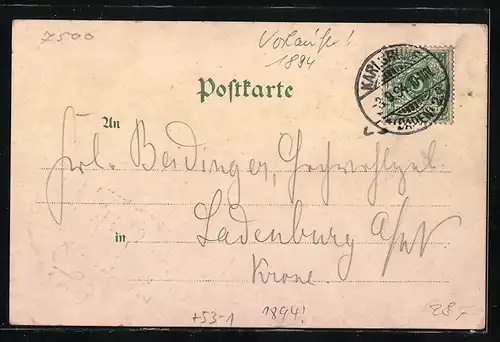 7500
Vorläufer!
1894
KARLSRUHE
(BADEN) 2
Postkarte
An
Frl. Beidinger, Hochwohlgeb.
in
Ladenburg a/
Krone
+53-1
1894!
28,-